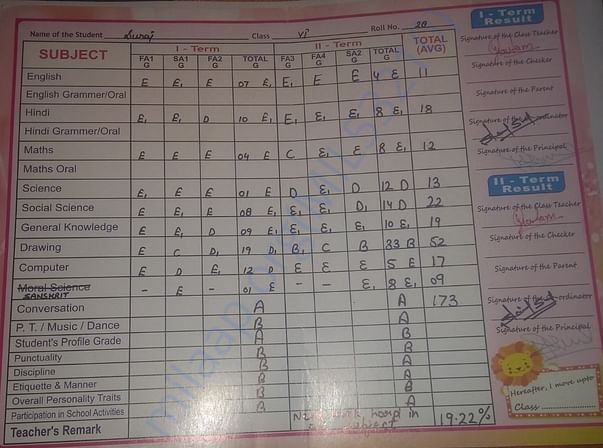 Name of the Student Suraj Class VI Roll No. 28
SUBJECT I - Term II - Term TOTAL (AVG)
FA1 G SA1 G FA2 G TOTAL G FA3 G FA4 G SA2 G TOTAL G
English E E, E 07 E, E, E E 4 E 11
English Grammer/Oral
Hindi E, E, D 10 E, E, E, E, 8 E, 18
Hindi Grammer/Oral
Maths E E E 04 E C E, E 8 E, 12
Maths Oral
Science E, E E 01 E D E, D 12 D 13
Social Science E E, E 08 E, E, E, D, 14 D 22
General Knowledge E E, D 09 E, E, E, E, 10 E, 19
Drawing E C D, 19 D, B, C B 33 B 52
Computer E D E, 12 D E E E 5 E 17
Moral Science
SANSKRIT - E - 01 E - - E, 8 E, 09
Conversation A A 173
P. T. / Music / Dance B B
Student's Profile Grade A B
Punctuality B A
Discipline B A
Etiquette & Manner B B
Overall Personality Traits B A
Participation in School Activities B
Teacher's Remark hard in 19.22%
I - Term
Result
Signature of the Class Teacher
Signature of the Checker
Signature of the Parent
Signature of the Principal
II - Term
Result
Signature of the Class Teacher
Signature of the Checker
Signature of the Parent
Signature of the Principal
Hereafter, I move upto
Class